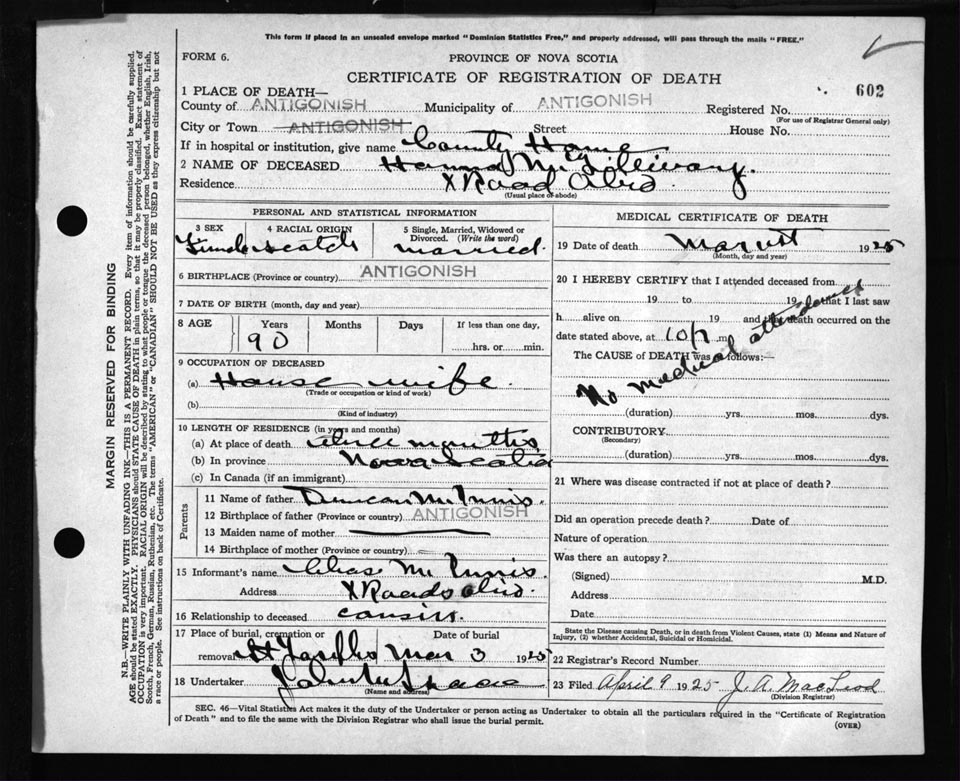 This form if placed in an unsealed envelope marked "Dominion Statistics Free," and properly addressed, will pass through the mails "FREE."
FORM 6.
PROVINCE OF NOVA SCOTIA
CERTIFICATE OF REGISTRATION OF DEATH
602
1 PLACE OF DEATH—
County of ANTIGONISH Municipality of ANTIGONISH Registered No.
(For use of Registrar General only)
City or Town ANTIGONISH Street House No.
If in hospital or institution, give name County Home
2 NAME OF DECEASED Hannah McGillivary.
Residence X Road Ohio.
(Usual place of abode)
PERSONAL AND STATISTICAL INFORMATION
3 SEX 4 RACIAL ORIGIN 5 Single, Married, Widowed or Divorced. (Write the word)
Scotch married.
6 BIRTHPLACE (Province or country) ANTIGONISH
7 DATE OF BIRTH (month, day and year)
8 AGE Years Months Days If less than one day,
90 hrs. or min.
9 OCCUPATION OF DECEASED
(a) House wife.
(Trade or occupation or kind of work)
(b)
(Kind of industry)
10 LENGTH OF RESIDENCE (in years and months)
(a) At place of death months
(b) In province Nova Scotia
(c) In Canada (if an immigrant)
Parents
11 Name of father Duncan McInnis.
12 Birthplace of father (Province or country) ANTIGONISH
13 Maiden name of mother
14 Birthplace of mother (Province or country)
15 Informant's name Chas McInnis.
Address X Roads Ohio.
16 Relationship to deceased cousin.
17 Place of burial, cremation or removal Date of burial
St Josephs Mar 3 1925
18 Undertaker John
(Name and address)
MEDICAL CERTIFICATE OF DEATH
19 Date of death Mar 1st 1925
(Month, day and year)
20 I HEREBY CERTIFY that I attended deceased from
19 to 19 that I last saw
h alive on 19 and that death occurred on the
date stated above, at m.
The CAUSE of DEATH was as follows:—
No medical attendance
(duration) yrs. mos. dys.
CONTRIBUTORY
(Secondary)
(duration) yrs. mos. dys.
21 Where was disease contracted if not at place of death?
Did an operation precede death? Date of
Nature of operation
Was there an autopsy?
(Signed) M.D.
Address
Date
State the Disease causing Death, or in death from Violent Causes, state (1) Means and Nature of
Injury, (2) whether Accidental, Suicidal or Homicidal.
22 Registrar's Record Number
23 Filed April 9 1925 J. A. MacLeod
(Division Registrar)
SEC. 46—Vital Statistics Act makes it the duty of the Undertaker or person acting as Undertaker to obtain all the particulars required in the "Certificate of Registration
of Death" and to file the same with the Division Registrar who shall issue the burial permit.
(OVER)
MARGIN RESERVED FOR BINDING
N.B.—WRITE PLAINLY WITH UNFADING INK—THIS IS A PERMANENT RECORD. Every item of information should be carefully supplied.
AGE should be stated EXACTLY. PHYSICIANS should STATE CAUSE OF DEATH in plain terms, so that it may be properly classified. Exact statement of
OCCUPATION is very important. RACIAL ORIGIN will be described by stating to what people or tongue the deceased person belonged, whether English, Irish,
Scotch, French, German, Russian, Ruthenian, etc. The terms "AMERICAN" or "CANADIAN" SHOULD NOT BE USED as they express citizenship but not
a race or people. See instructions on back of Certificate.